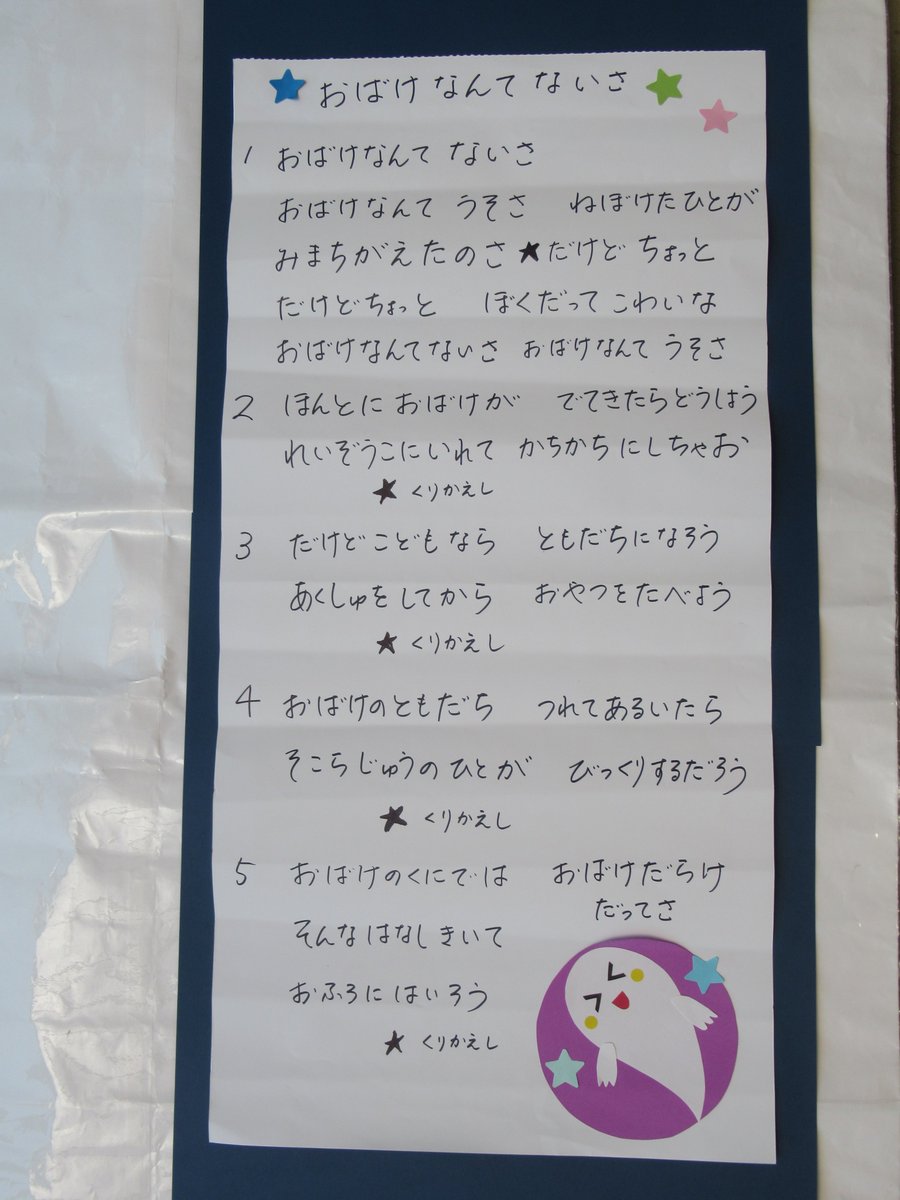 おばけなんてないさ
1 おばけなんて ないさ
おばけなんて うそさ ねぼけたひとが
みまちがえたのさ ★だけど ちょっと
だけどちょっと ぼくだって こわいな
おばけなんてないさ おばけなんて うそさ
2 ほんとに おばけが でてきたらどうしよう
れいぞうこにいれて かちかちにしちゃお
★ くりかえし
3 だけどこどもなら ともだちになろう
あくしゅをしてから おやつをたべよう
★ くりかえし
4 おばけのともだち つれてあるいたら
そこらじゅうのひとが びっくりするだろう
★ くりかえし
5 おばけのくにでは おばけだらけ
だってさ
そんなはなしきいて
おふろにはいろう
★ くりかえし